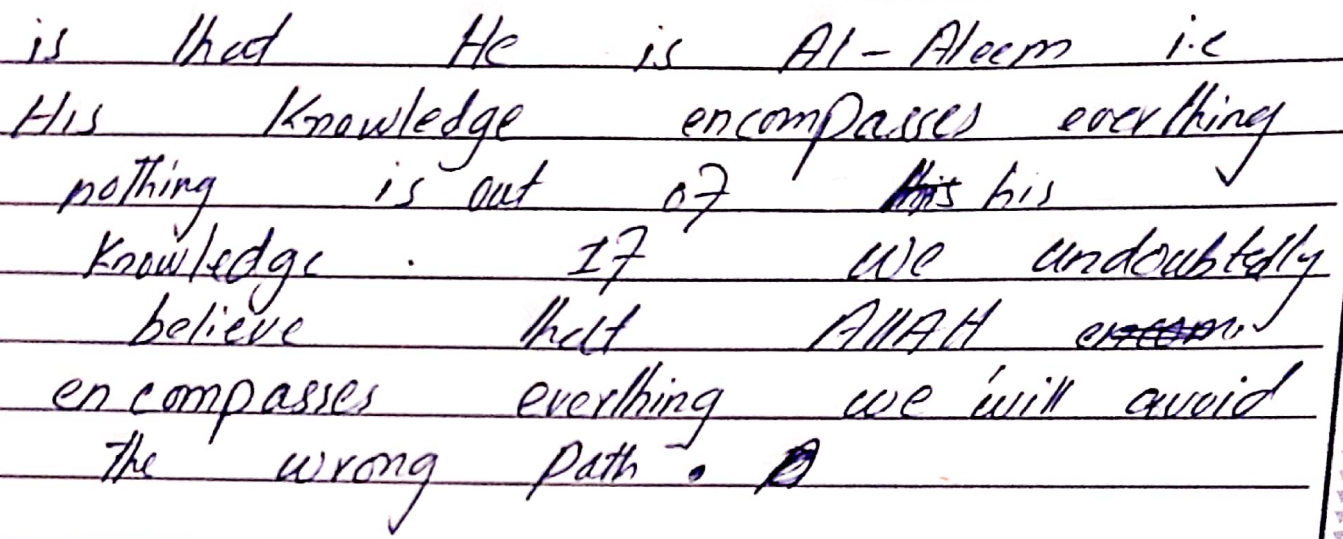 is that He is Al-Aleem i.e
His Knowledge encompasses everthing
nothing is out of his
Knowledge. If we undoubtedly
believe that AllAH
encompasses everthing we will avoid
the wrong path.